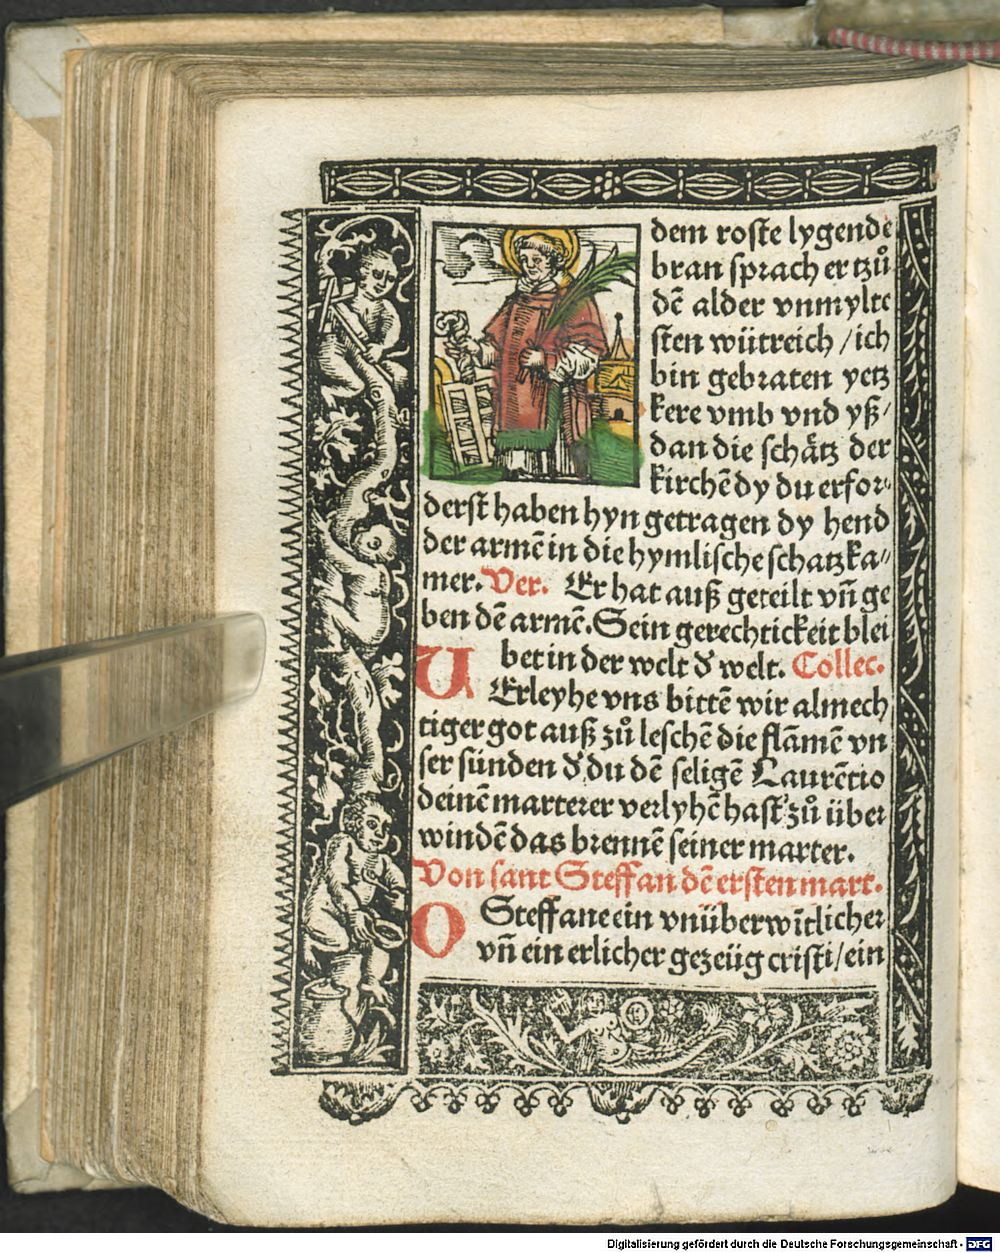 dem roste lygende
bran sprach er tzů
dē alder vnmylte
sten wütreich / ich
bin gebraten yetz
kere vmb vnd yß /
dan die schätz der
kirchē dy du erfor⸗
derst haben hyn getragen dy hend
der armē in die hymlische schatzka⸗
mer. Ver. Er hat auß geteilt vn̄ ge
ben dē armē. Sein gerechtickeit blei
bet in der welt d' welt. Collec.
U Erleyhe vns bittē wir almech
tiger got auß zů leschē die flāmē vn
ser sünden d' du dē seligē Laurētio
deinē marterer verlyhē hast zů über
windē das brennē seiner marter.
Von sant Steffan dē ersten mart.
O Steffane ein vnüberwītlicher
vn̄ ein erlicher gezeüg cristi / ein
Digitalisierung gefördert durch die Deutsche Forschungsgemeinschaft - DFG